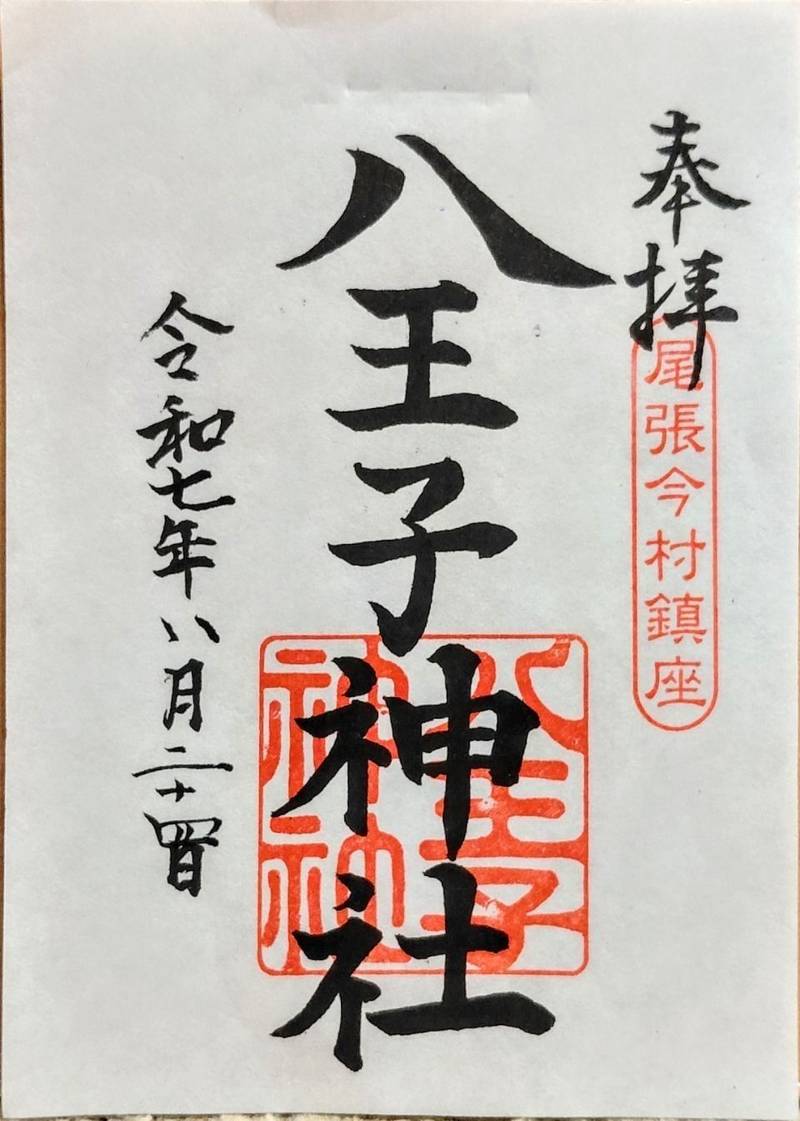 奉拝
尾張今村鎮座
八王子神社
八王子
神社
令和七年八月二十四日